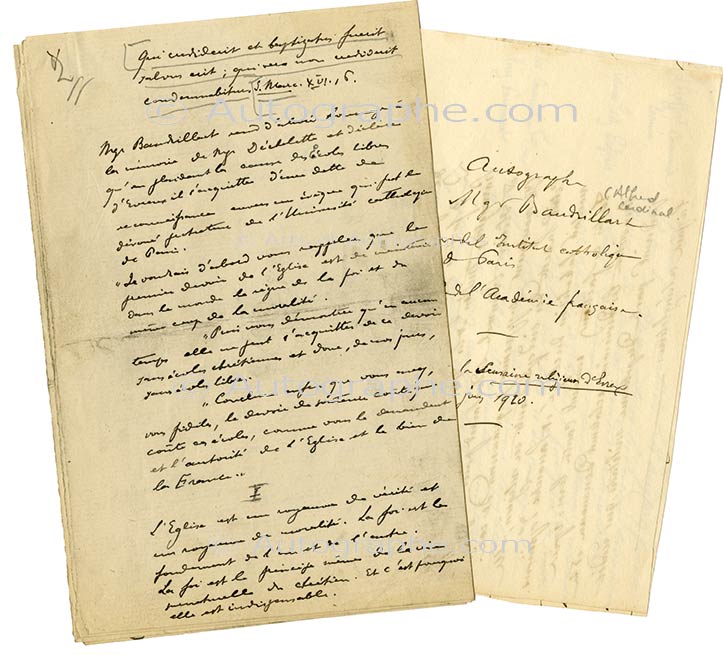 Qui crediderit et baptizatus fuerit
salvus erit; qui vero non crediderit
condemnabitur. S. Marc. XVI, 16.
Mgr Baudrillart rend d'abord hommage à
la mémoire de Mgr Déchelette et déclare
qu'en plaidant la cause des Écoles libres
d'Evreux il s'acquitte d'une dette de
reconnaissance envers un évêque qui fut le
dévoué protecteur de l'Université catholique
de Paris.
"Je voudrais d'abord vous rappeler que le
premier devoir de l'Eglise est de maintenir
dans le monde le règne de la foi et du
même coup de la moralité.
"Puis vous démontrer qu'en aucun
temps elle ne peut s'acquitter de ce devoir
sans écoles chrétiennes et donc, de nos jours,
sans écoles libres.
"Conclure enfin que, pour vous,
vos fidèles, le devoir de soutenir coûte que
coûte ces écoles, comme vous le demandent
et l'autorité de l'Eglise et le bien de
la France."
I
L'Eglise est un royaume de vérité et
un royaume de moralité. La foi est le
fondement de l'un et de l'autre.
La foi est le principe même de la vie
surnaturelle du chrétien. Et c'est pourquoi
elle est indispensable.
Autographe
Mgr Baudrillart
(Alfred
cardinal
de l'Institut catholique
de Paris
de l'Académie française.
la Semaine religieuse d'Evreux
juin 1920.
© Autographe.com
© Autographe.com
© Autographe.com
© Autographe.com